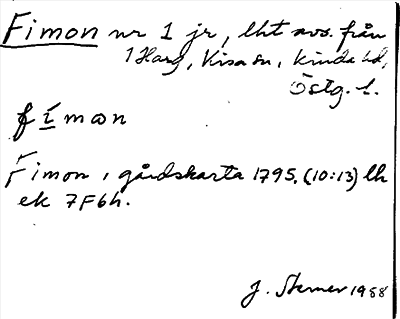 Fimon nr 1 jr, lht avs. från
1 Harg, Kisa sn, Kinda hd,
Östg. l.
fímon
Fimon, gårdskarta 1795. (10:13) lh
ek 7F6h.
J. Sterner 1988